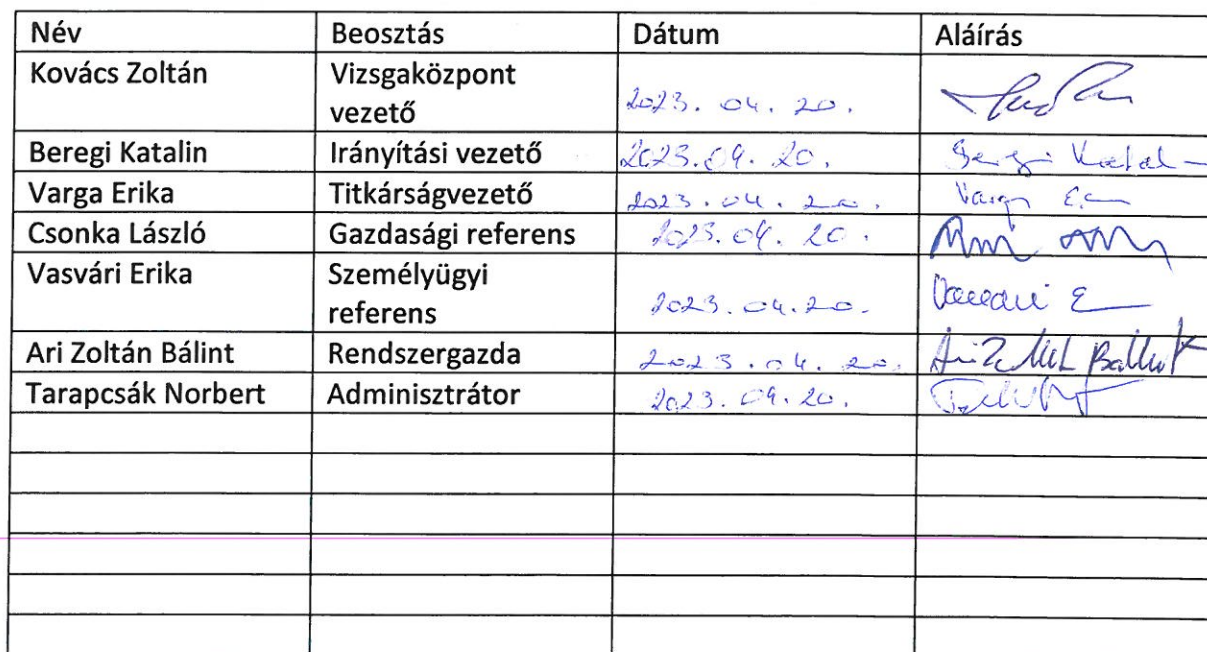 Név Beosztás Dátum Aláírás
Kovács Zoltán Vizsgaközpont
vezető 2023. 04. 20.
Beregi Katalin Irányítási vezető 2023. 04. 20. Beregi Katal
Varga Erika Titkárságvezető 2023. 04. 20. Varga E
Csonka László Gazdasági referens 2023. 04. 20.
Vasvári Erika Személyügyi
referens 2023. 04. 20. Vasvári E
Ari Zoltán Bálint Rendszergazda 2023. 04. 20. Ari Zoltán Bálint
Tarapcsák Norbert Adminisztrátor 2023. 04. 20.